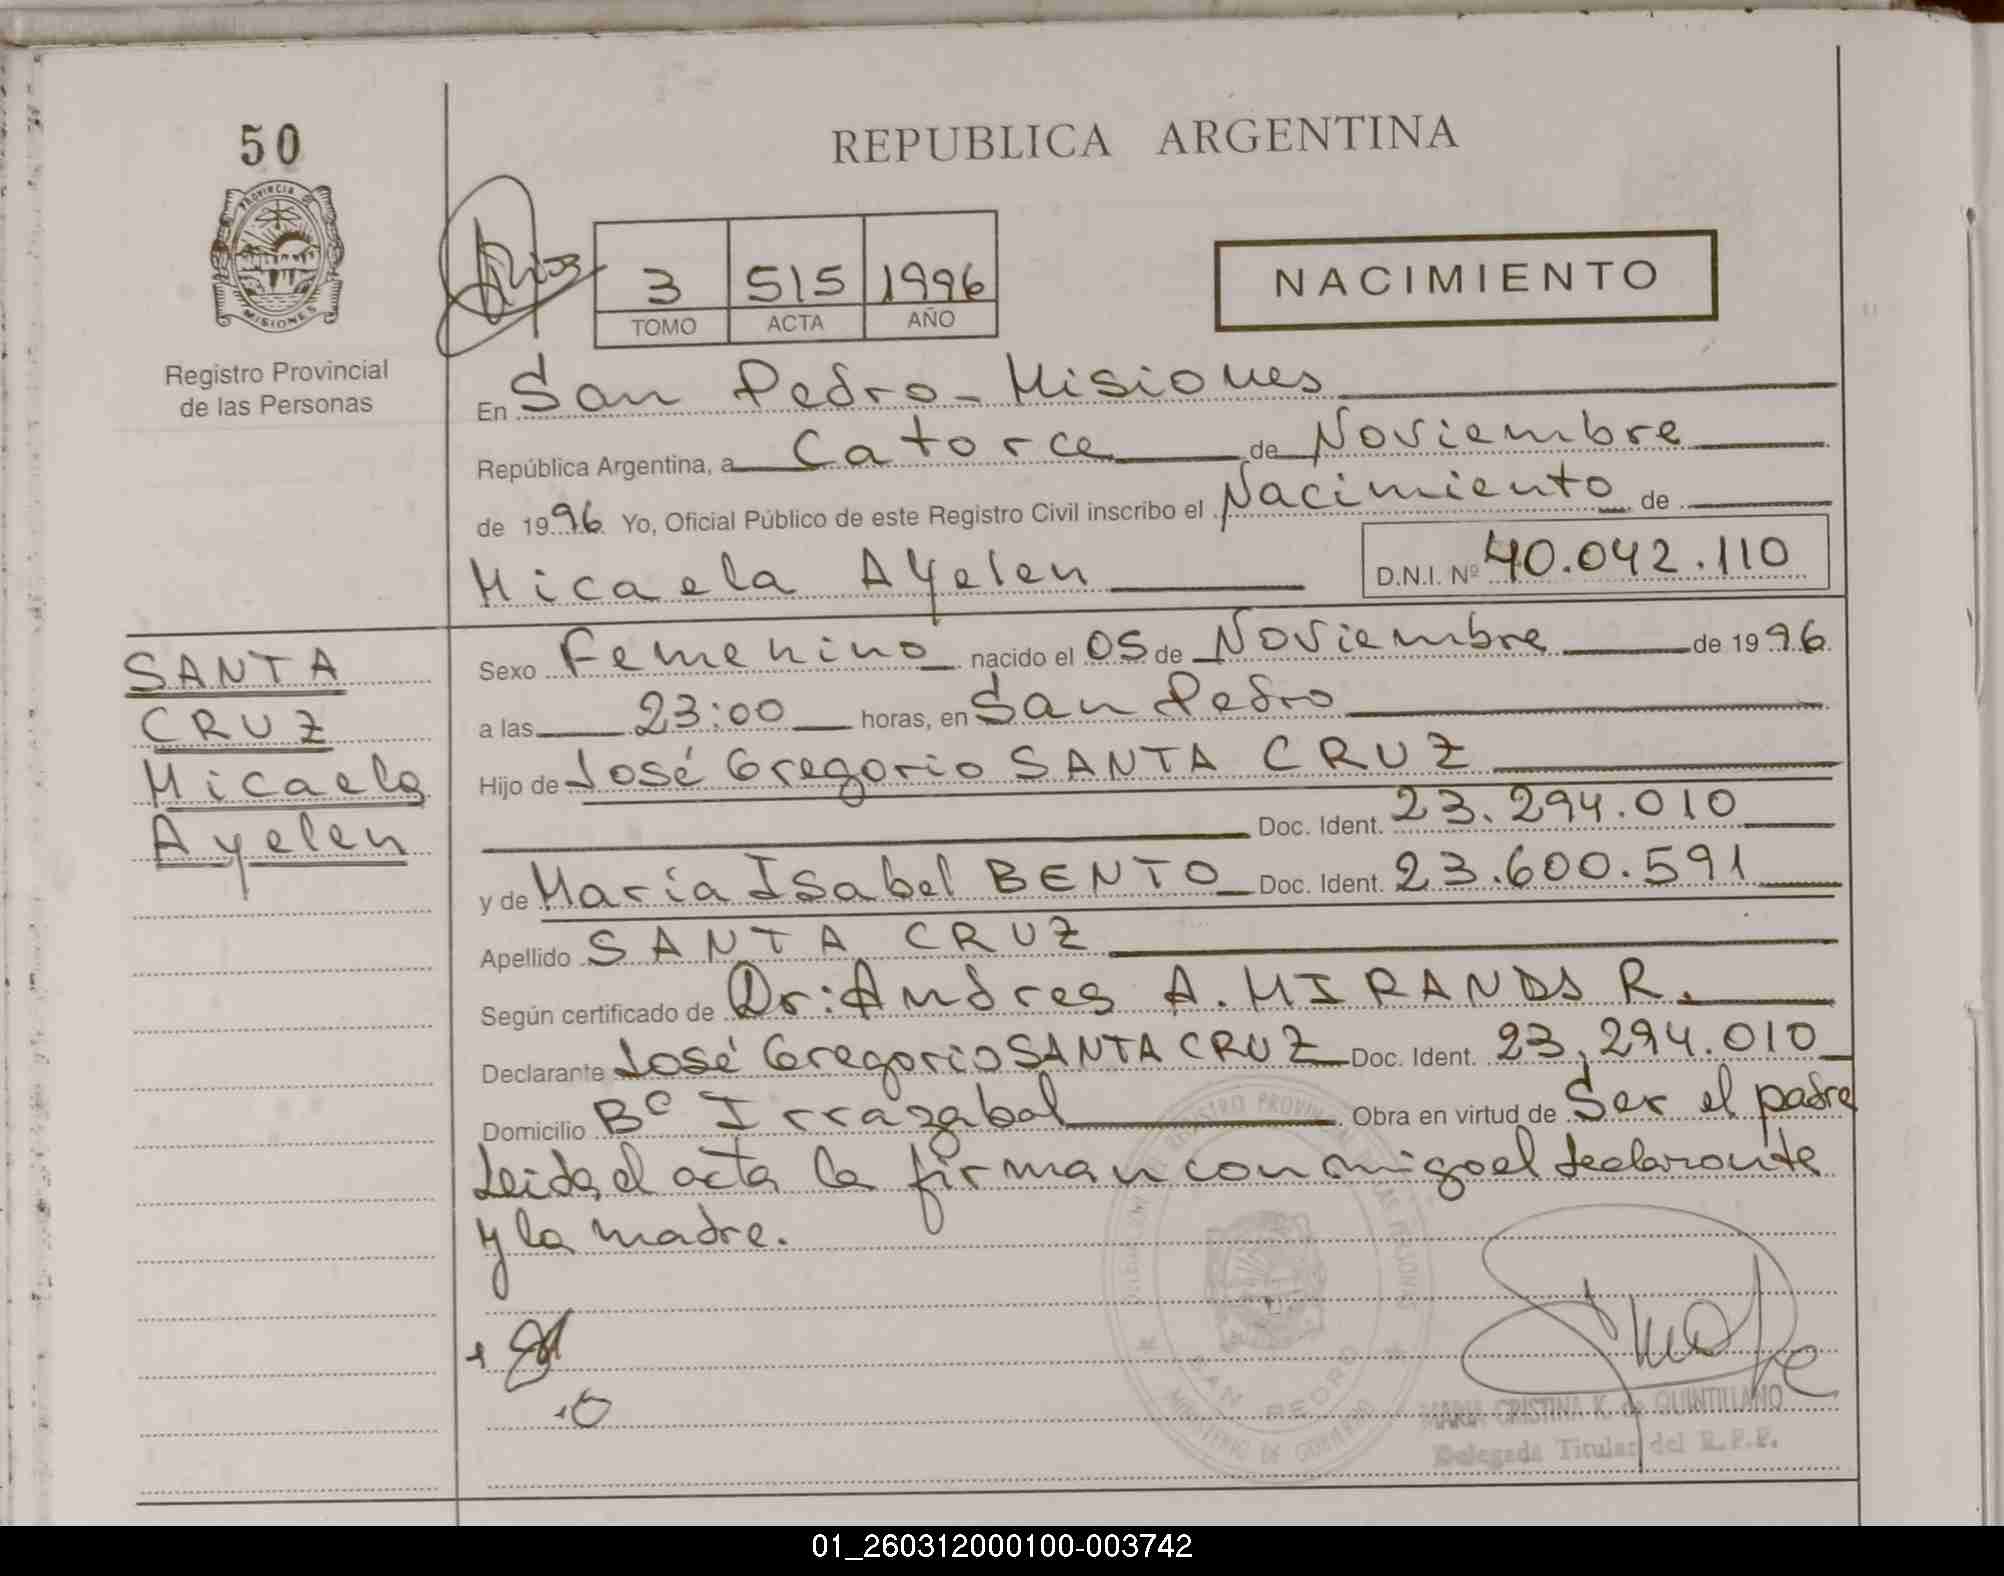 50
REPUBLICA ARGENTINA
PROVINCIA DE
MISIONES
Registro Provincial
de las Personas
3 515 1996
TOMO ACTA AÑO
NACIMIENTO
En San Pedro - Misiones
República Argentina, a Catorce de Noviembre
de 1996 Yo, Oficial Público de este Registro Civil inscribo el Nacimiento de
Micaela Ayelen D.N.I. Nº 40.042.110
SANTA
CRUZ
Micaela
Ayelen
Sexo Femenino nacido el 05 de Noviembre de 1996
a las 23:00 horas, en San Pedro
Hijo de José Gregorio SANTA CRUZ
Doc. Ident. 23.294.010
y de María Isabel BENTO Doc. Ident. 23.600.591
Apellido SANTA CRUZ
Según certificado de Dr: Andres A. MIRANDA R.
Declarante José Gregorio SANTA CRUZ Doc. Ident. 23,294.010
Domicilio Bº Irrazabal Obra en virtud de Ser el padre
Leida el acta la firman conmigo el declarante
y la madre.
SAN PEDRO
MINISTERIO DE GOBIERNO
MARIA CRISTINA K. de QUINTILLANO
Delegada Titular del R.P.P.
01_260312000100-003742